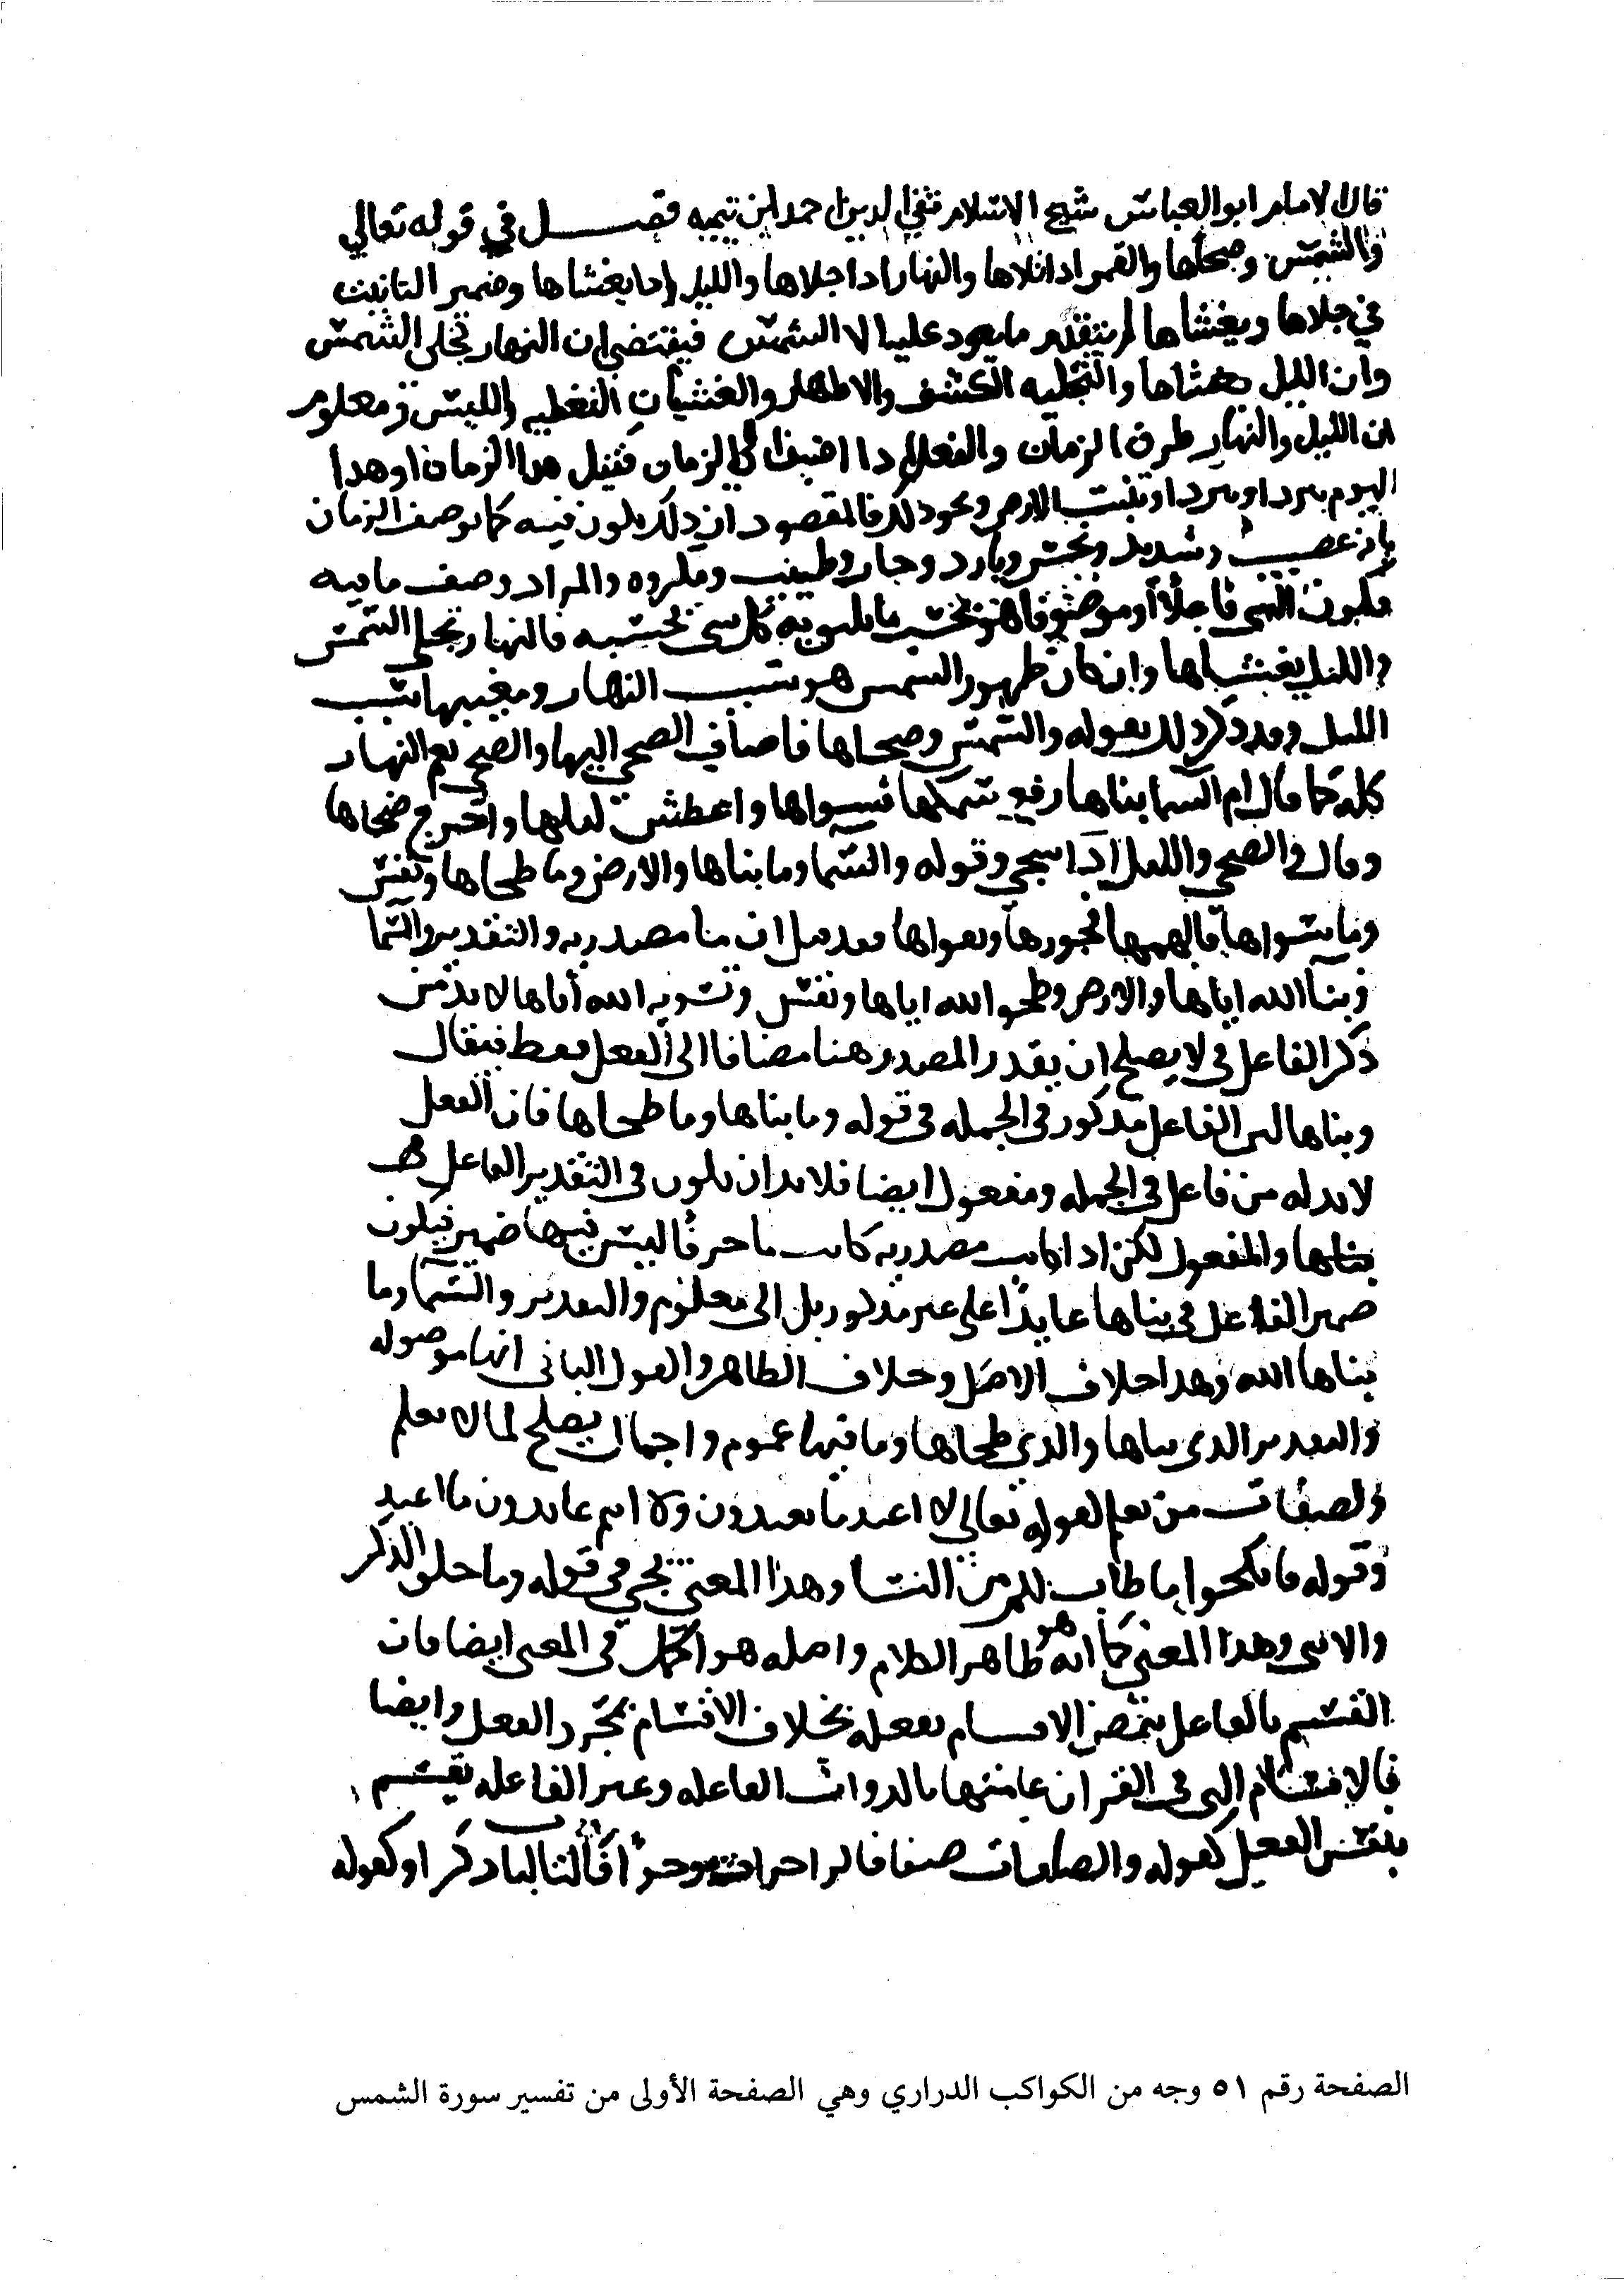 قال الامام ابو العباس شيخ الاسلام تقي الدين احمد ابن تيميه فصل في قوله تعالي
والشمس وضحاها والقمر اذا تلاها والنهار اذا جلاها والليل اذا يغشاها وضمير التانيث
في جلاها ويغشاها لم يتقدم ما يعود عليه الا الشمس فيقتضي ان النهار يجلي الشمس
وان الليل يغشاها والتجليه الكشف والاظهار والغشيان التغطيه واللبس ومعلوم
ان الليل والنهار ظرفا الزمان والفعل اذا اضيف الي الزمان فقيل هذا الزمان او هذا
اليوم يبرد او يبرد او ينبت الارض ونحو ذلك فالمقصود ان ذلك يكون فيه كما يوصف الزمان
بانه عصيب وشديد ونحس وبارد وحار وطيب ومكروه والمراد وصف ما فيه
فكون الشي فاعلا او موصوفا هو بحسب ما يليق به كل شي بحسبه فالنهار يجلي الشمس
والليل يغشاها وان كان ظهور الشمس هو سبب النهار ومغيبها سبب
الليل وقد ذكر ذلك بقوله والشمس وضحاها فاضاف الضحي اليها والضحي يعم النهار
كله كما قال ام السما بناها رفع سمكها فسواها واغطش ليلها واخرج ضحاها
وقال والضحي والليل اذا سجي وقوله والسما وما بناها والارض وما طحاها ونفس
وما سواها فالهمها فجورها وتقواها فقد قيل ان ما مصدريه والتقدير والسما
وبنا الله اياها والارض وطحو الله اياها ونفس وتسويه الله اياها لا بد من
ذكر الفاعل في لا يصلح ان يقدر المصدر هنا مضافا الى الفعل فقط فيقال
وبناها لان الفاعل مذكور في الجمله في قوله وما بناها وما طحاها فان الفعل
لا بد له من فاعل في الجمله ومفعول ايضا فلا بد ان يكون في التقدير الفاعل
بناها والمفعول لكن اذا كانت مصدريه كانت ما حرفا ليس فيها ضمير فيكون
ضمير الفاعل في بناها عايدا على غير مذكور بل الى معلوم والتقدير والسما وما
بناها الله وهذا خلاف الاصل وخلاف الظاهر والقول الثاني انها موصوله
والتقدير الذي بناها والذي طحاها وما فيها عموم واجمال يصلح لما لا يعلم
ولصفات من يعلم لقوله تعالى لا اعبد ما تعبدون ولا انتم عابدون ما اعبد
وقوله فانكحوا ما طاب لكم من النسا وهذا المعنى يجي في قوله وما خلق الذكر
والانثى وهذا المعنى كما انه هو ظاهر الكلام واصله هو اكمل في المعنى ايضا فان
القسم بالفاعل يتضمن الاقسام بفعله بخلاف الاقسام بمجرد الفعل وايضا
فالاقسام التي في القران عامتها بالذوات الفاعله وغير الفاعله يقسم
بنفس الفعل كقوله والصافات صفا فالزاجرات زجرا فالتاليات ذكرا وكقوله
الصفحة رقم ٥١ وجه من الكواكب الدراري وهي الصفحة الأولى من تفسير سورة الشمس